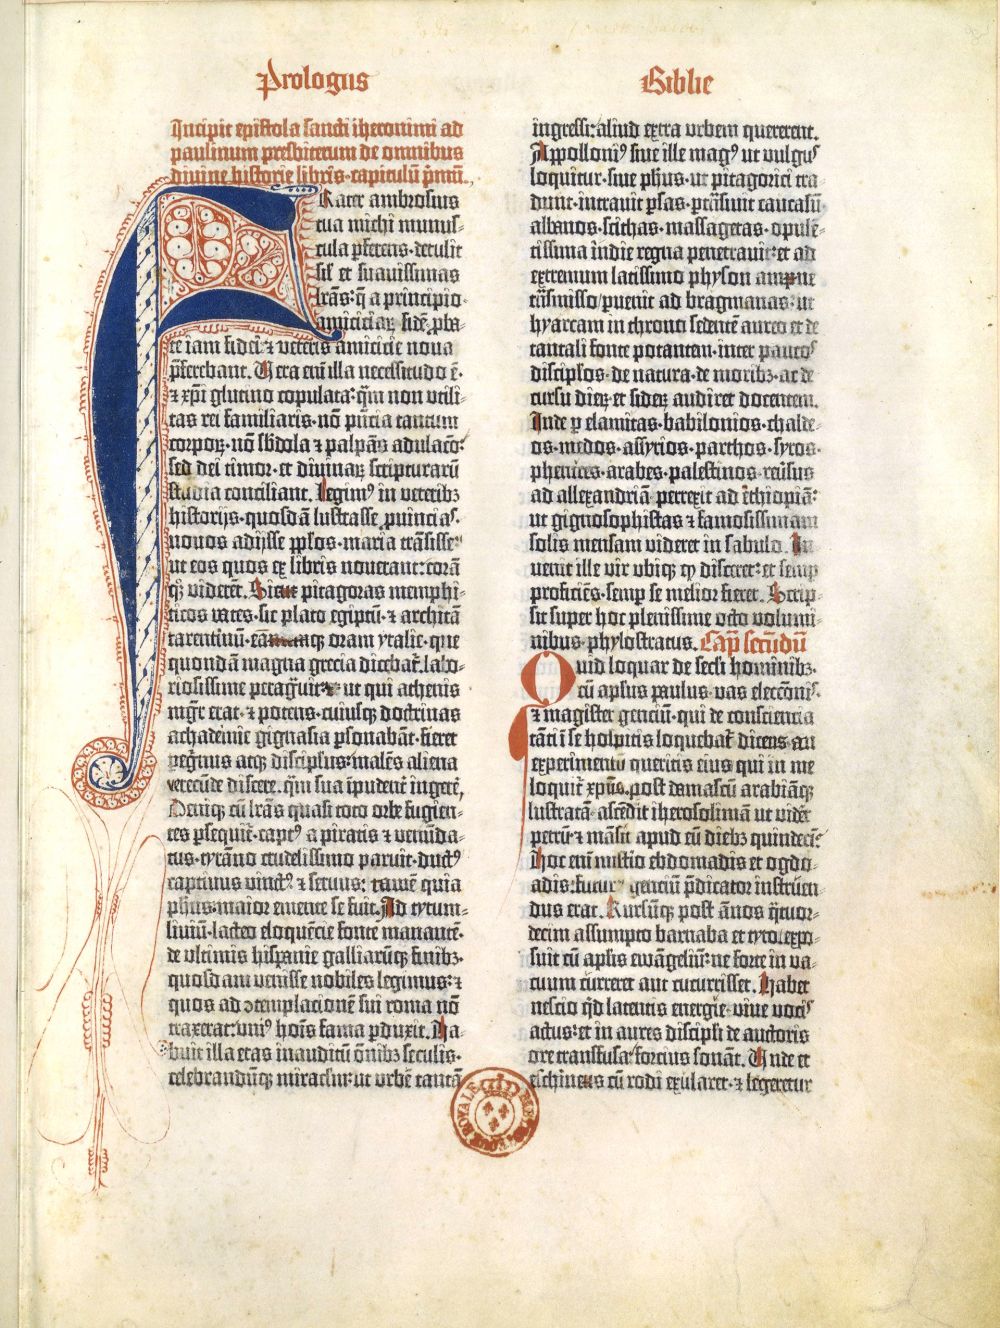 Prologus
Incipit epistola sancti iheronimi ad
paulinum presbiterum de omnibus
diuine historie libris·capitulū p̄mū.
Frater ambrosius
tua michi munus⸗
cula p̄ferens·detulit
sil̄ et suauissimas
lr̄as:q̄ a principio
amiciciaꝝ fidē ꝓba⸗
te iam fidei:⁊ veteris amicicie noua
p̄ferebant. Uera eni̅ illa necessitudo ē·
⁊ xp̄i glutino copulata:qm̄ non vtili⸗
tas rei familiaris·nō pn̄cia tantum
corpoꝝ·nō sb̄dola ⁊ palpās adulacō:
sed dei timor·et diuinaꝝ scripturarū
studia conciliant. Legimꝰ in veteribꝫ
historijs·quosdā lustrasse ꝓuincias·
nouos adijsse pp̄los·maria trāsisse:
ut eos quos ex libris nouerant:corā
qꝫ viderēt. Sicut pitagoras memphi⸗
ticos vates·sic plato egiptū·⁊ architā
tarentinū·eāmqꝫ oram ytalie·que
quondā magna grecia dicebat̄·labo⸗
riosissime peragͣuit:ut qui athenis
mgr̄ erat·⁊ potens·cuiusqꝫ doctrinas
achademie gignasia ꝑsonabāt·fieret
peg̓nus atqꝫ discipulus:malēs aliena
verecūde discere·qͣm sua īpudent̄ ingerē,
Deniqꝫ cū lr̄as quasi toto orbe fugien⸗
tes ꝑsequit̄·captꝰ a piratis ⁊ venūda⸗
tus·tyrāno crudelissimo paruit·ductꝰ
captiuus vinctꝰ ⁊ seruus: tamē quia
phūs·maior emente se fuit. Ad tytum⸗
liuiū·lacteo eloquēcie fonte manantē·
de vltimis hispanie galliarūqꝫ finibꝫ·
quosdam venisse nobiles legimus:⁊
quos ad ↄtemplacionē sui roma nō
traxerat:vniꝰ hoīs fama ꝑduxit. Ha⸗
buit illa etas inauditū ōnibꝫ seculis·
celebrandūqꝫ miraclm̄:ut vrbē tantā
Biblie
ingressi:aliud extra vrbem quererent.
Appolloniꝰ siue ille magꝰ ut vulgus
loquitur·siue phūs·ut pitagorici tra
dunt·intrauit ꝑsas·ꝑtrāsiuit caucasū
albanos·scithas·massagetas·opulē⸗
tissima indie regna penetrauit:et ad
extremum latissimo physon ampne
trāsmisso ꝑuenit ad bragmanas:ut
hyarcam in throno sedentē aureo et de
tantali fonte potantem·inter paucos
discipl̄os·de natura·de moribꝫ·ac de
cursu dieꝝ et sideꝝ audiret docentem.
Inde ꝑ elamitas·babilonios·chalde⸗
os·medos·assyrios·parthos·syros·
phenices·arabes·palestinos·reūsus
ad allexandriā ꝑrexit ad ethiopiā:
ut gignosophistas ⁊ famosissimam
solis mensam videret in sabulo. In⸗
uenit ille vir vbiqꝫ qͩ disceret:et semꝑ
proficiēs·semꝑ se melior fieret. Scrip⸗
sit super hoc plenissime octo volumi⸗
nibus·phylostratus. Cap̄ secūdū
Quid loquar de secl̄i hominibꝫ·
cū apl̄us paulus·vas eleccōnis·
⁊ magister genciū·qui de consciencia
tāti ī se hospitis loquebat̄ dicens·an
experimentū queritis eius qui in me
loquit̄ xp̄us·post damascū arabiāqꝫ
lustratā·ascēdit iherosolimā ut vidēt
petrū·⁊ māsit apud eū diebꝫ quindecī:
Hoc eni̅ mist̓io ebdomadis et ogdo⸗
adis:futurꝰ genciū p̄dicator instruen⸗
dus erat. Rursūqꝫ post ānos qͣtuor⸗
decim assumpto barnaba et tyto·expo⸗
suit cū apl̄is ewāgeliū:ne forte in va⸗
cuum curreret aut cucurrisset. Habet
nescio qͩd latentis energie·viue vocis
actus:et in aures discipl̄i de auctoris
ore transfusa·forcius sonāt. Unde et
eschineus cū rodi exularet·⁊ legeretur